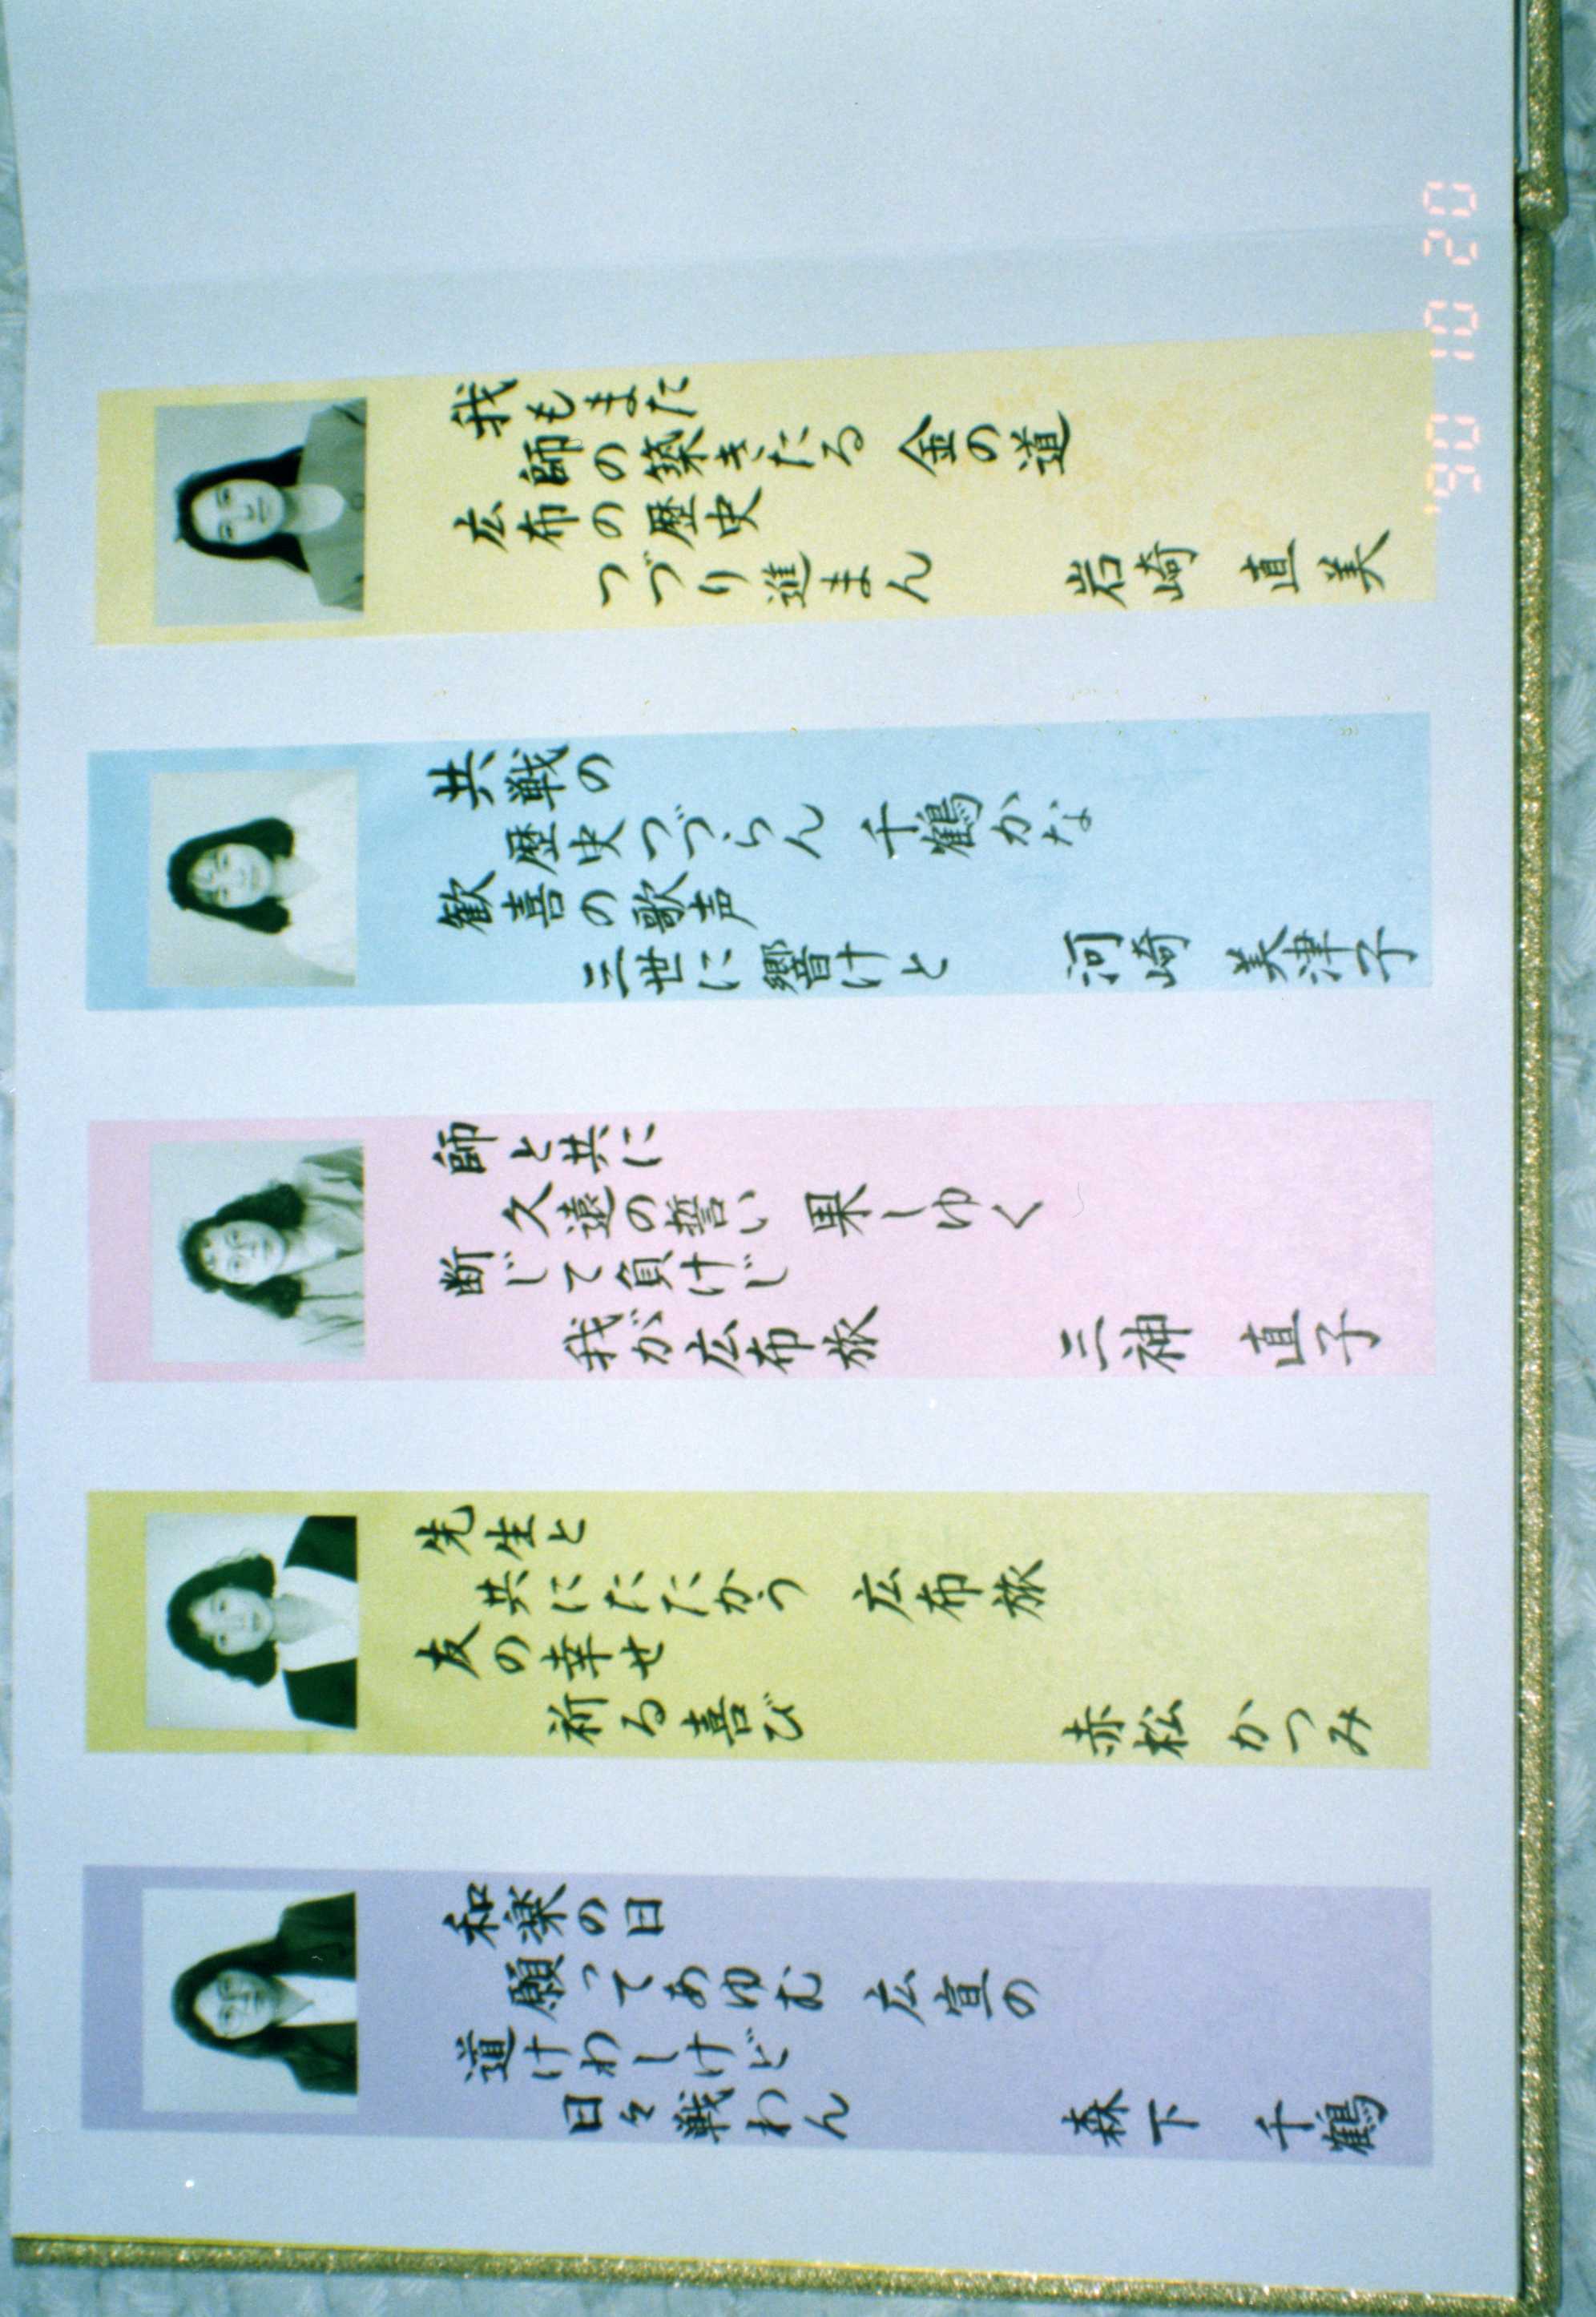 我もまた
師の築きたる 金の道
広布の歴史
つづり進まん
岩崎 直美
共戦の
歴史つづらん 千鶴かな
歓喜の歌声
三世に響けと
河崎 美津子
師と共に
久遠の誓い 果しゆく
断じて負けじ
我が広布旅
三神 直子
先生と
共にたたかう 広布旅
友の幸せ
祈る喜び
赤松 かつみ
和楽の日
願ってあゆむ 広宣の
道けわしけど
日々戦わん
森下 千鶴
'90 10 20